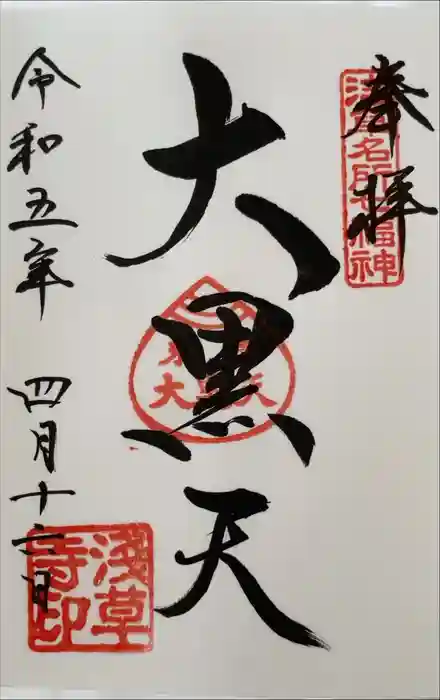 奉拝
浅草名所七福神
大黒天
令和五年 四月十六日
淺草寺印